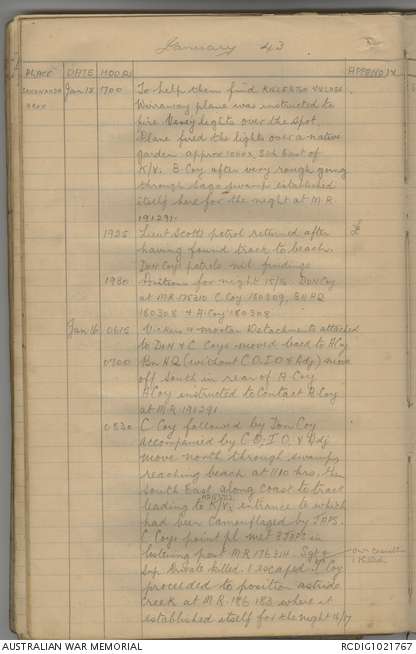 January 43
PLACE DATE HOURS APPENDIX
SANANANDA AREA Jan 15 1700 To help them find KILLERTON VILLAGE
Wirraway plane was instructed to
fire Verey lights over the spot.
Plane fired the lights over a native
garden approx South East of
K/V. B Coy after very rough going
through sago swamp established
itself here for the night at M.R
191291.
1925 Lieut Scott's patrol returned after
having found track to beach.
Don Coy's patrols nil findings
1930 Positions for night 15/16 Don Coy
at M.R. 175310 C Coy 180309, Bn HQ
180308 & A Coy 180308
Jan 16 0615 Vickers & mortar Detachments attached
to Don & C Coys moved back to A Coy
0700 Bn HQ (without C.O, I.O & Adj) move
off South in rear of A Coy
A Coy instructed to Contact B Coy
at M.R 191291
0830 C Coy followed by Don Coy
accompanied by C.O, I.O & Adj
move north through swamp
reaching beach at 1110 hrs, then
South East along coast to track
leading to K/V, entrance to which
had been camouflaged by JAPS.
C Coys point pl met 3 JAPS in
listening post M.R 176314. Sgt &
Private killed. 1 escaped. C Coy
proceeded to position astride
Creek at M.R. 186 183 where it
established itself for the night 16/17
our casualties
1 killed
AUSTRALIAN WAR MEMORIAL
RCDIG1021762